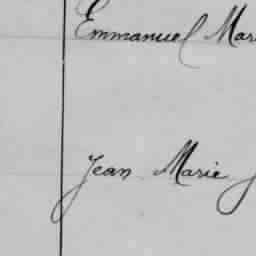 Emmanuel Mar
Jean Marie